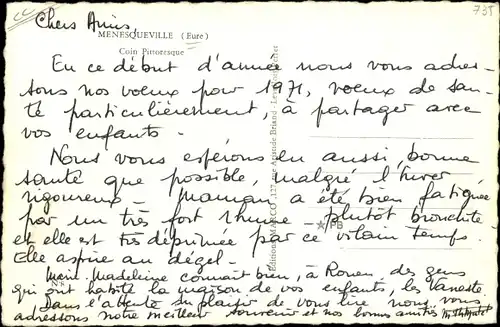 735
Chers Amis,
MENESQUEVILLE (Eure)
Coin Pittoresque
En ce début d'année nous vous adres-
sons nos voeux pour 1971, voeux de san-
té particulièrement, à partager avec
vos enfants.
Nous vous espérons en aussi bonne
santé que possible, malgré l'hiver
rigoureux. Maman a été bien fatiguée
par un très fort rhume plutôt bronchite
et elle est très déprimée par ce vilain temps.
Elle aspire au dégel.
Marie-Madeleine connait bien, à Rouen, des gens
qui ont habité la maison de vos enfants, les Vaneste.
Dans l'attente du plaisir de vous lire nous vous
adressons notre meilleur souvenir et nos bonnes amitiés
117, rue Aristide Briand